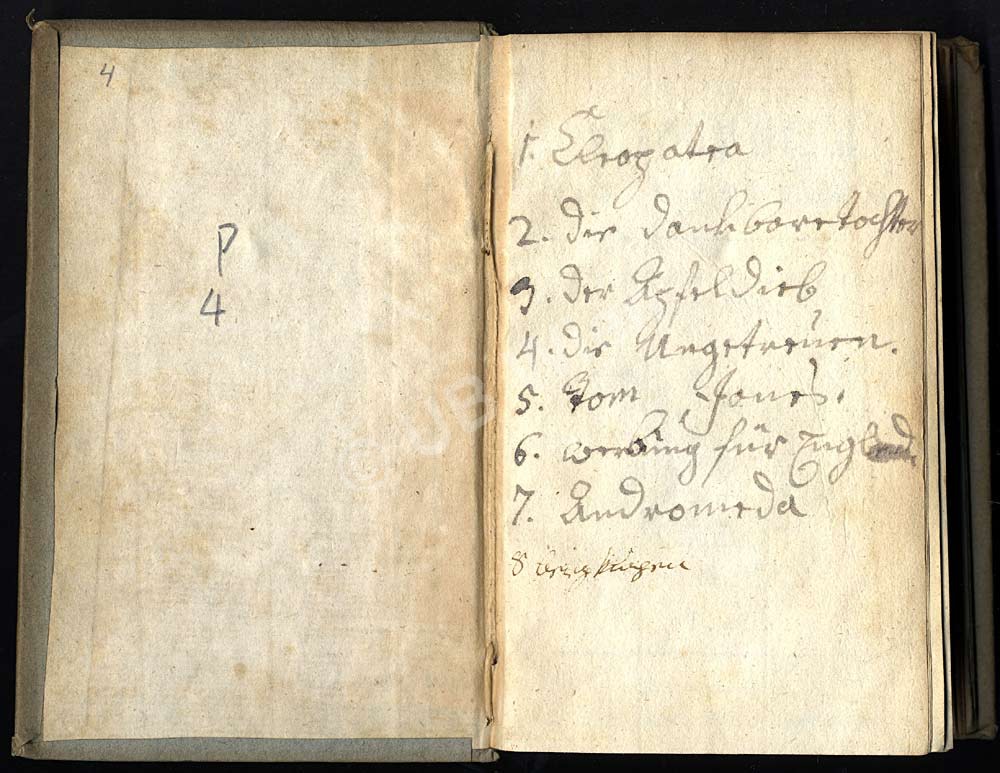 4
P
4
1. Cleopatra
2. die dankbare tochter
3. der Apfeldieb
4. die Ungetreuen.
5. Tom Jones.
6. werbung für Engl
7. Andromeda
8